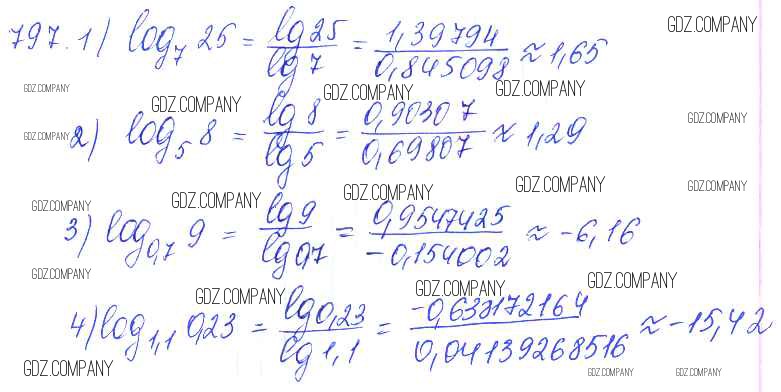 GDZ.COMPANY
797. 1) log₇ 25 = lg 25 / lg 7 = 1,39794 / 0,845098 ≈ 1,65
GDZ.COMPANY
GDZ.COMPANY GDZ.COMPANY GDZ.COMPANY
GDZ.COMPANY GDZ.COMPANY
2) log₅ 8 = lg 8 / lg 5 = 0,90307 / 0,69807 ≈ 1,29
GDZ.COMPANY GDZ.COMPANY GDZ.COMPANY GDZ.COMPANY GDZ.COMPANY
3) log₀,₇ 9 = lg 9 / lg 0,7 = 0,9547425 / -0,154002 ≈ -6,16
GDZ.COMPANY GDZ.COMPANY GDZ.COMPANY GDZ.COMPANY
4) log₁,₁ 0,23 = lg 0,23 / lg 1,1 = -0,638172164 / 0,04139268516 ≈ -15,42
GDZ.COMPANY GDZ.COMPANY GDZ.COMPANY